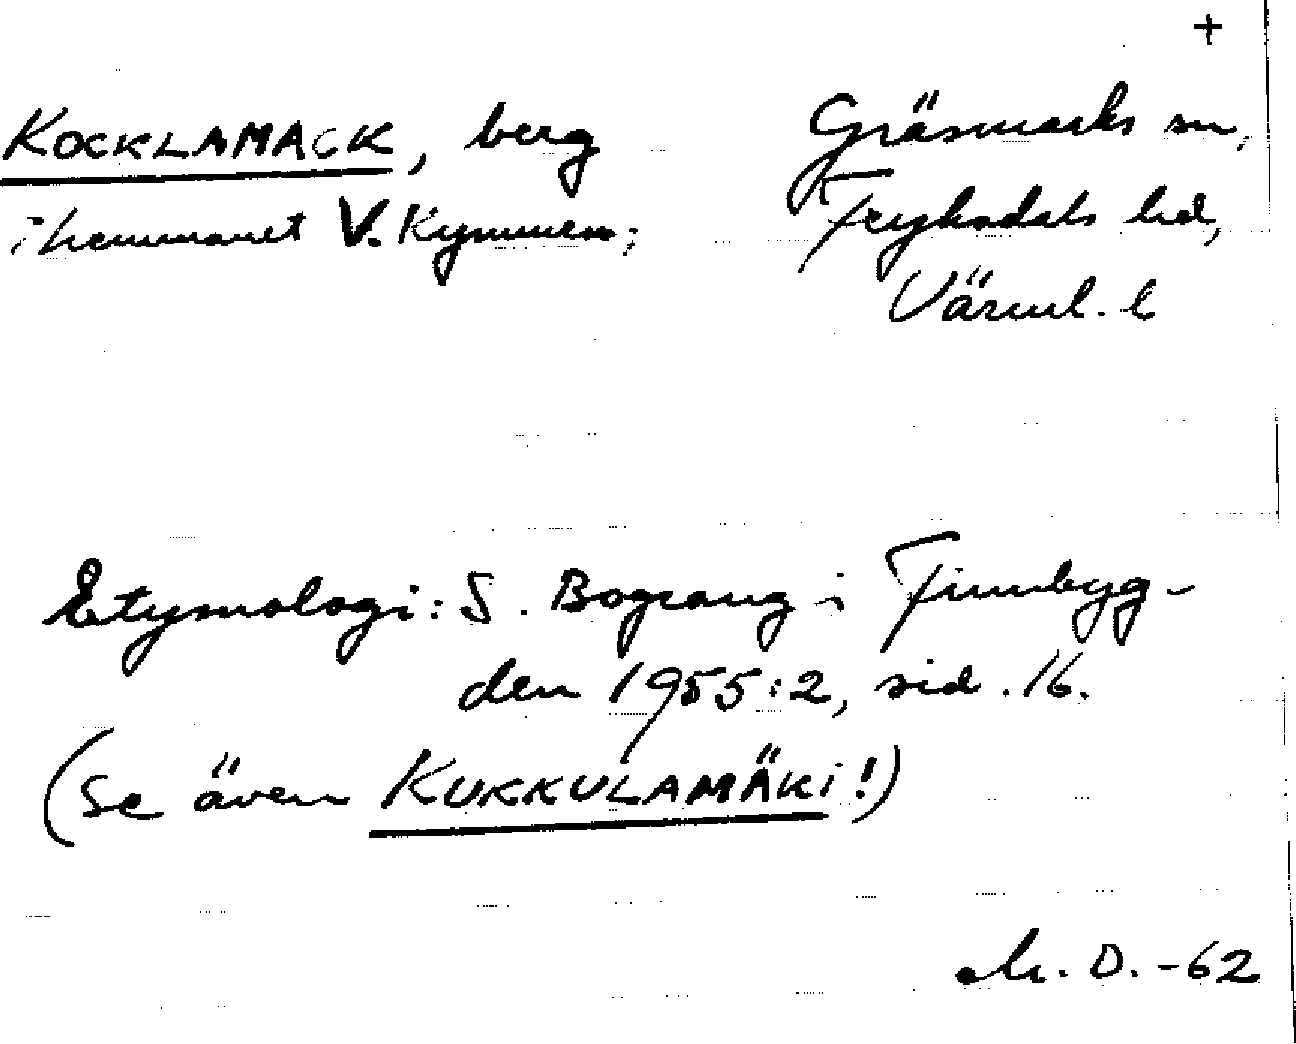 +
KOCKLAMACK, berg
i hemmanet V. Kymmen;
Gräsmarks sn,
Fryksdals hd,
Värml. l
Etymologi: S. Bograng i Finnbyg-
den 1955:2, sid. 16.
(Se även KUKKULAMÄKI!)
M. D. -62